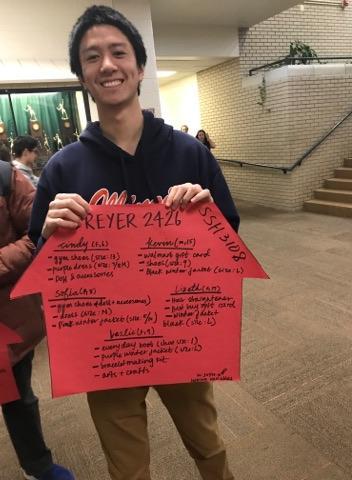 REYER 2426
SSH 3108
cindy (F,6)
- gym shoes (size: 13)
- purple dress (size: M)
- Doll & accessories
Kevin (M,15)
- walmart gift card
- shoes (size: 9)
- black winter jacket (size: L)
Sofia
- gym shoes (doll + accessories)
- dress (size: M)
- Pink winter jacket (size:
Lizeth
- Hair straightener
- buy gift card
- winter jacket
black (size: L)
Leslie (F,9)
- everyday boot (shoe size: 1)
- purple winter jacket (size: L)
- bracelet making kit
- arts + crafts